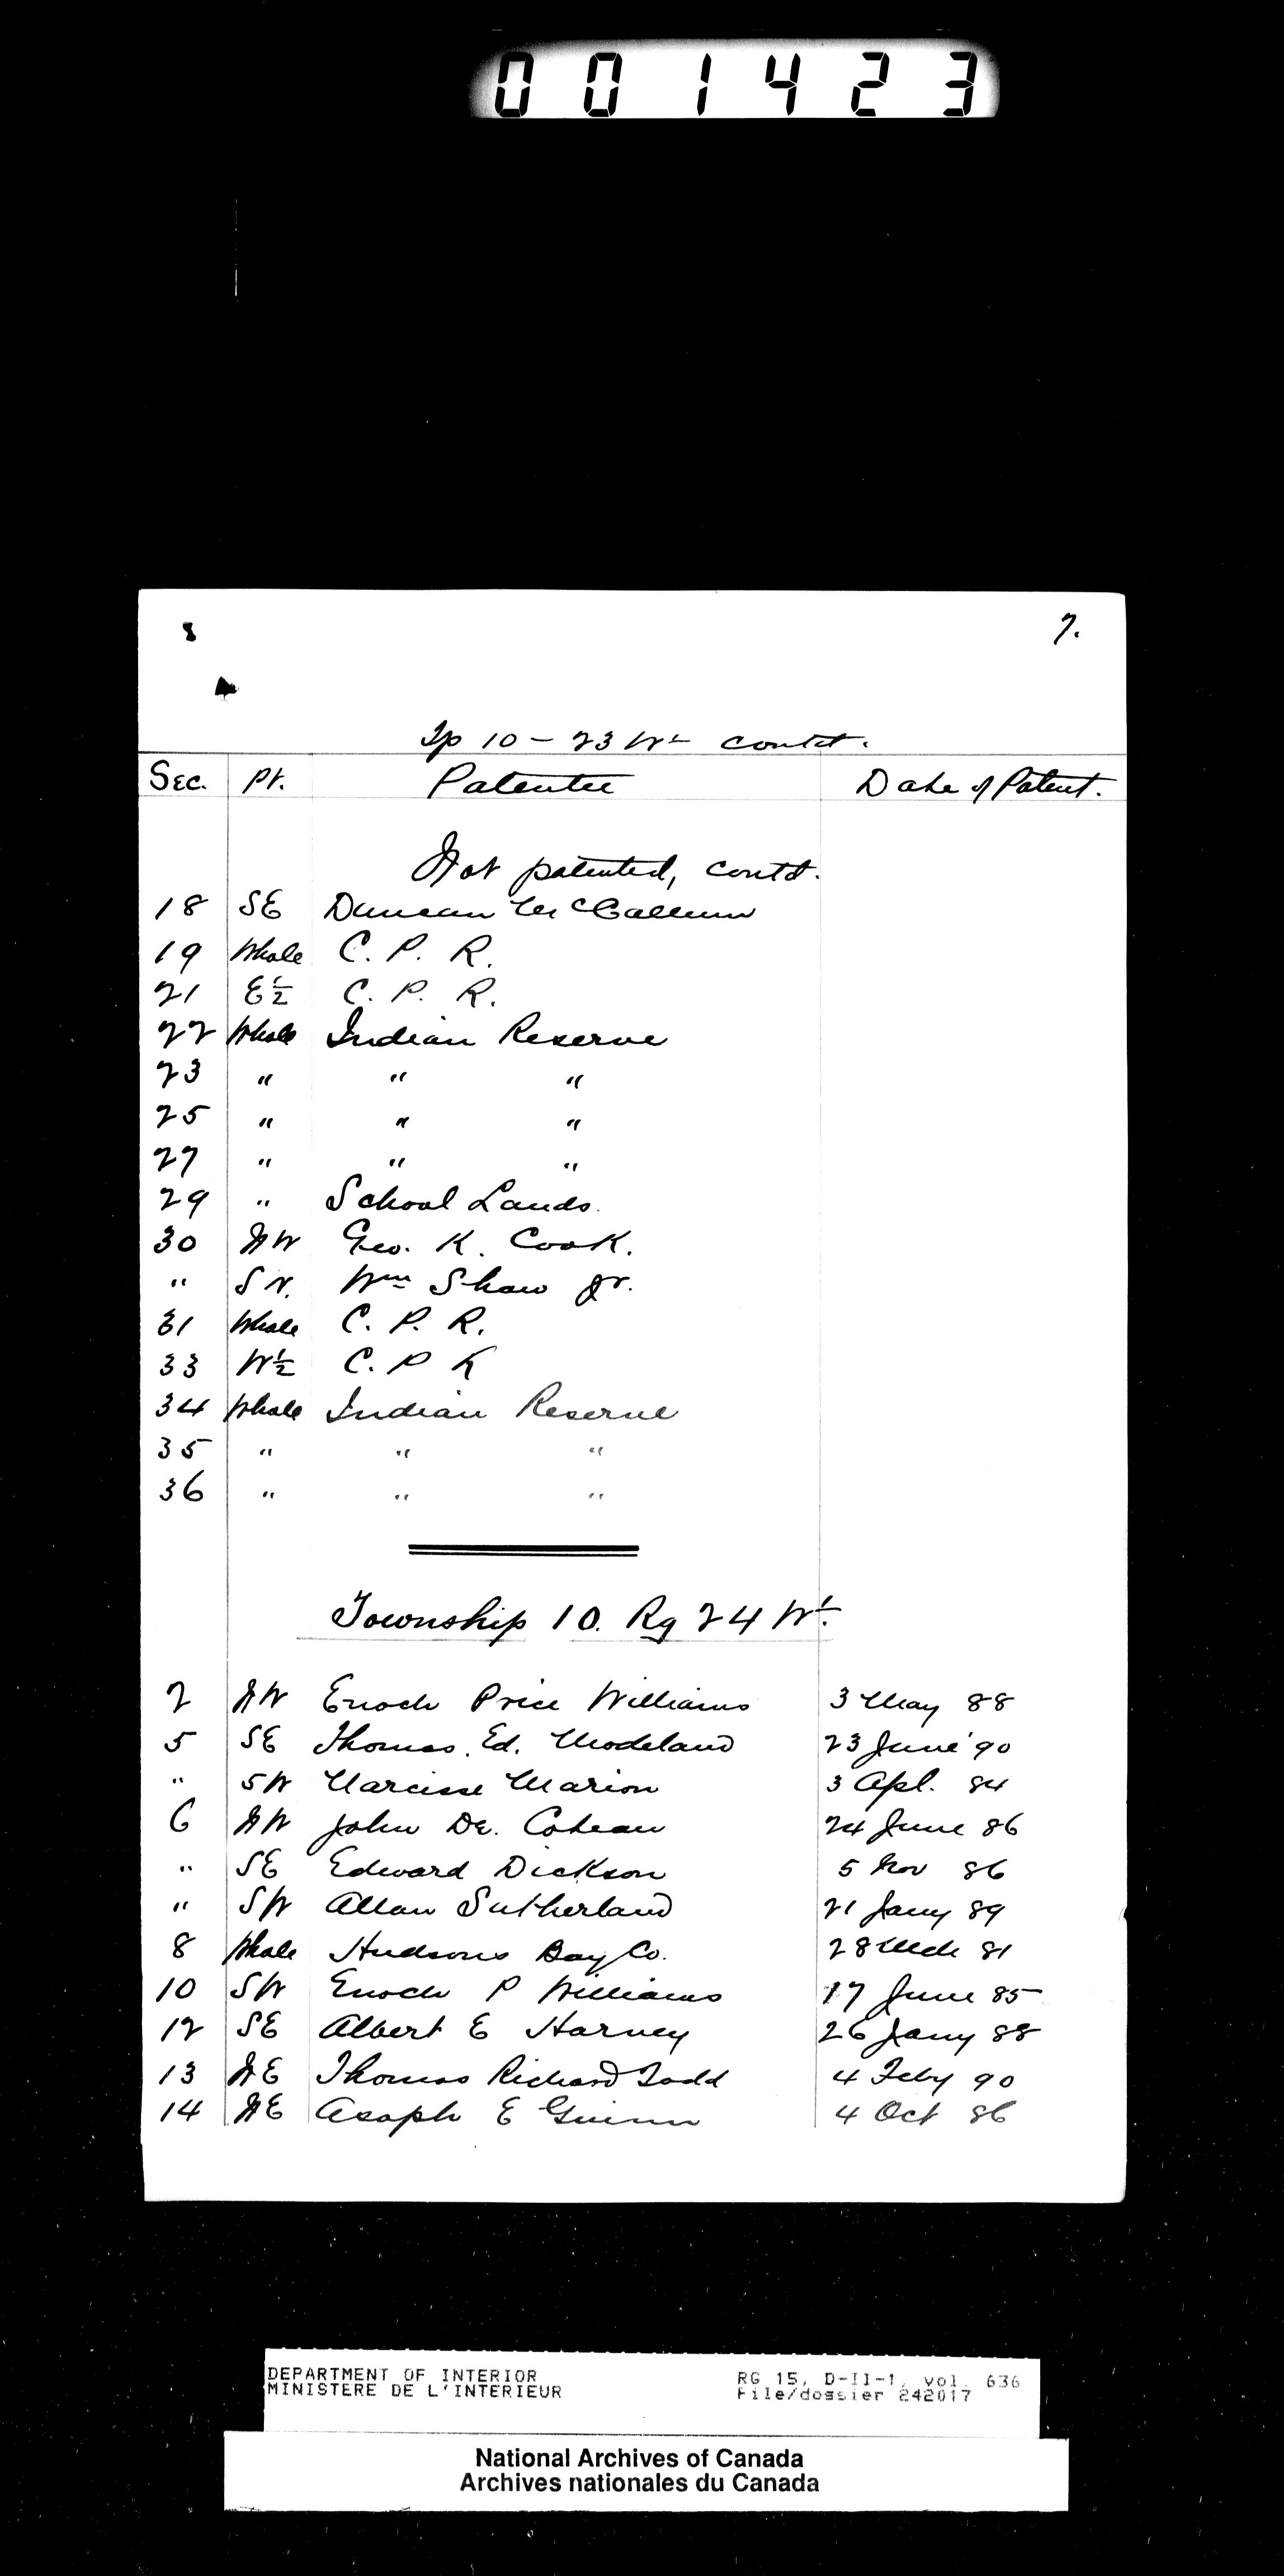 001423
7.
Tp 10 - 23 W1 contd.
Sec. Pt. Patentee Date of Patent.
Not patented, contd.
18 SE Duncan McCallum
19 Whole C. P. R.
21 E½ C. P. R.
22 Whole Indian Reserve
23 " " "
25 " " "
27 " " "
29 " School Lands.
30 NW Geo. K. Cook.
" SW. Wm Shaw Jr.
31 Whole C. P. R.
33 W½ C. P R
34 Whole Indian Reserve
35 " " "
36 " " "
Township 10. Rg 24 W1.
2 NW Enoch Price Williams 3 May 88
5 SE Thomas. Ed. Modeland 23 June '90
" SW Narcisse Marion 3 Apl. 84
6 NW John De. 24 June 86
" SE Edward Dickson 5 Nov 86
" SW Allan Sutherland 21 Jany 89
8 Whole Hudsons Bay Co. 28 Mch 81
10 SW Enoch P Williams 17 June 85
12 SE Albert E Harvey 26 Jany 88
13 NE Thomas Richard Todd 4 Feby 90
14 NE Asaph E Guinn 4 Oct 86
DEPARTMENT OF INTERIOR RG 15, D-II-1, vol. 636
MINISTERE DE L'INTERIEUR File/dossier 242017
National Archives of Canada
Archives nationales du Canada